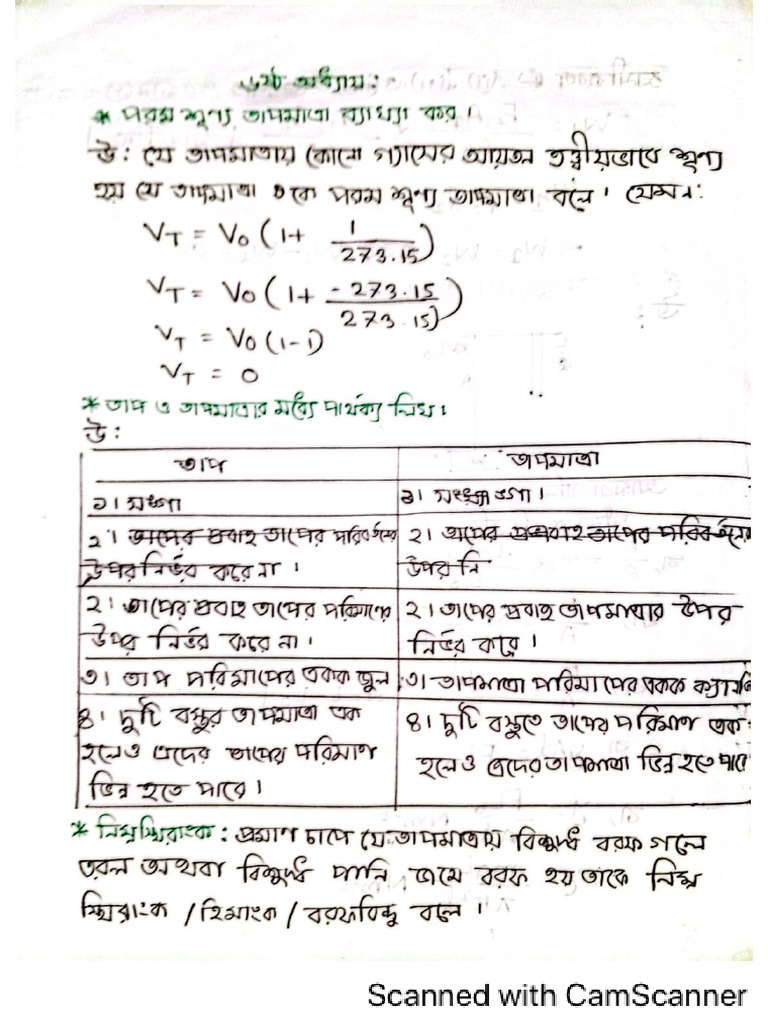 ৬ষ্ঠ অধ্যায়:
* পরম শূণ্য তাপমাত্রা ব্যাখ্যা কর।
উ: যে তাপমাতায় কোনো গ্যাসের আয়তন তত্ত্বীয়ভাবে শূণ্য
হয় যে তাপমাত্রা কে পরম শূণ্য তাপমাত্রা বলে। যেমন:
V_T = V₀ (1 + 1/273.15)
V_T = V₀ (1 + -273.15/273.15)
V_T = V₀ (1-1)
V_T = 0
* তাপ ও তাপমাত্রার মধ্যে পার্থক্য লিখ।
উ:
তাপ | তাপমাত্রা
১। সঙ্গা | ১। সঙ্গা।
২। তাপের প্রবাহ তাপের পরিবর্তনের | ২। তাপের প্রবাহ তাপের পরিবর্তনের
উপর নির্ভর করে না। | উপর নি
২। তাপের প্রবাহ তাপের পরিমাণের | ২। তাপের প্রবাহ তাপমাত্রার উপর
উপর নির্ভর করে না। | নির্ভর করে।
৩। তাপ পরিমাপের একক জুল | ৩। তাপমাত্রা পরিমাপের একক
৪। দুটি বস্তুর তাপমাত্রা এক | ৪। দুটি বস্তুতে তাপের পরিমাণ এক
হলেও এদের তাপের পরিমাণ | হলেও এদের তাপমাত্রা ভিন্ন হতে পারে
ভিন্ন হতে পারে।
* নিম্নস্থিরাংক: প্রমাণ চাপে যে তাপমাত্রায় বিশুদ্ধ বরফ গলে
তরল অথবা বিশুদ্ধ পানি জমে বরফ হয় তাকে নিম্ন
স্থিরাংক / হিমাংক / বরফবিন্দু বলে।
Scanned with CamScanner